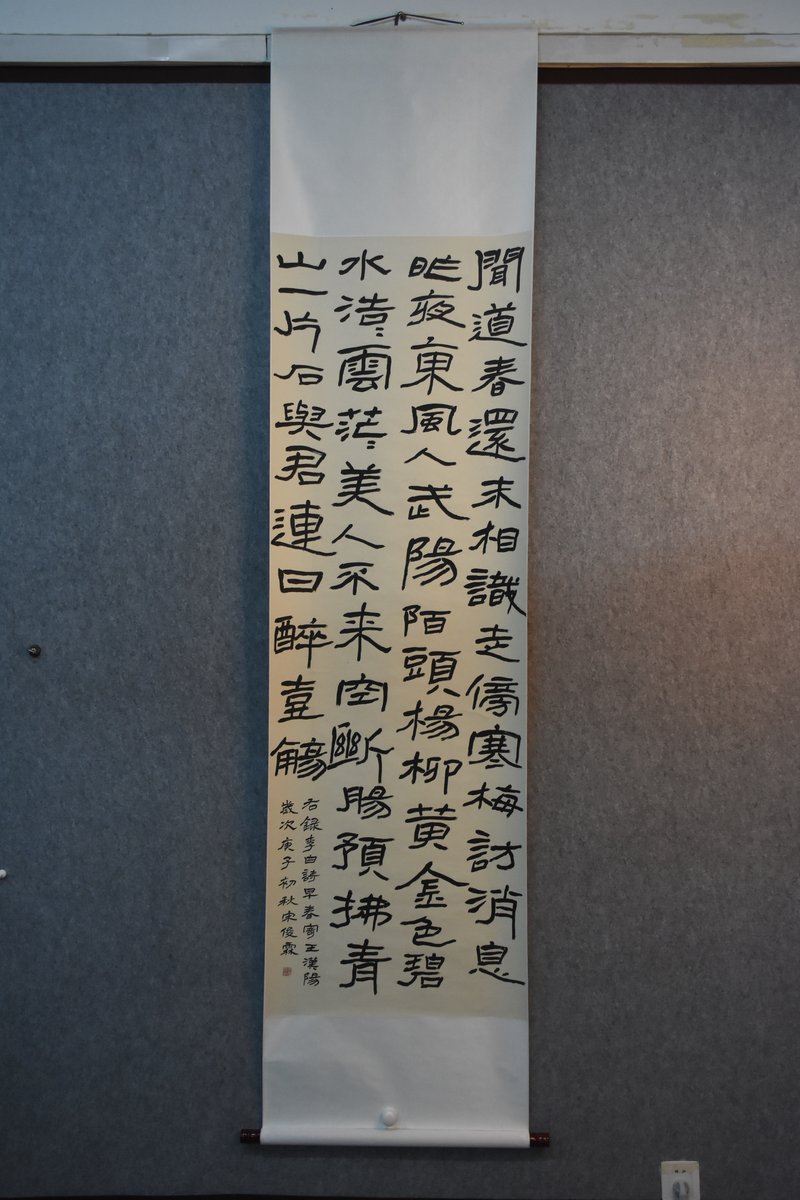 聞道春還未相識走傍寒梅訪消息
昨夜東風入武陽陌頭楊柳黄金色碧
水浩〻雲茫〻美人不来空斷腸預拂青
山一片石與君連日醉壺觴
右録李白詩早春寄王漢陽
歲次庚子初秋宋俊霖